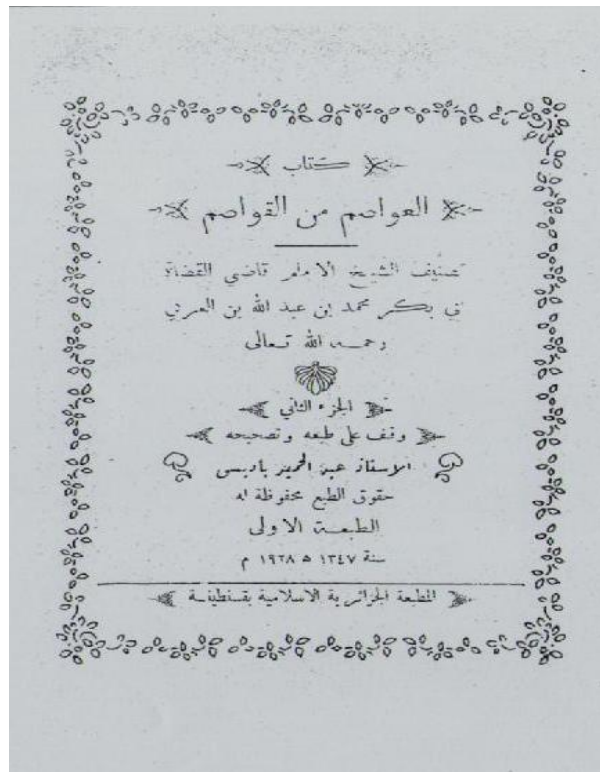 كتاب
العواصم من القواصم
تصنيف الشيخ الامام قاضي القضاة
بي بكر محمد بن عبد الله بن العربي
رحمه الله تعالى
الجزء الثاني
وقف على طبعه وتصحيحه
الاستاذ عبد الحميد باديس
حقوق الطبع محفوظة له
الطبعة الاولى
سنة ١٣٤٧ ه ١٩٢٨ م
المطبعة الجزائرية الاسلامية بقسنطينة